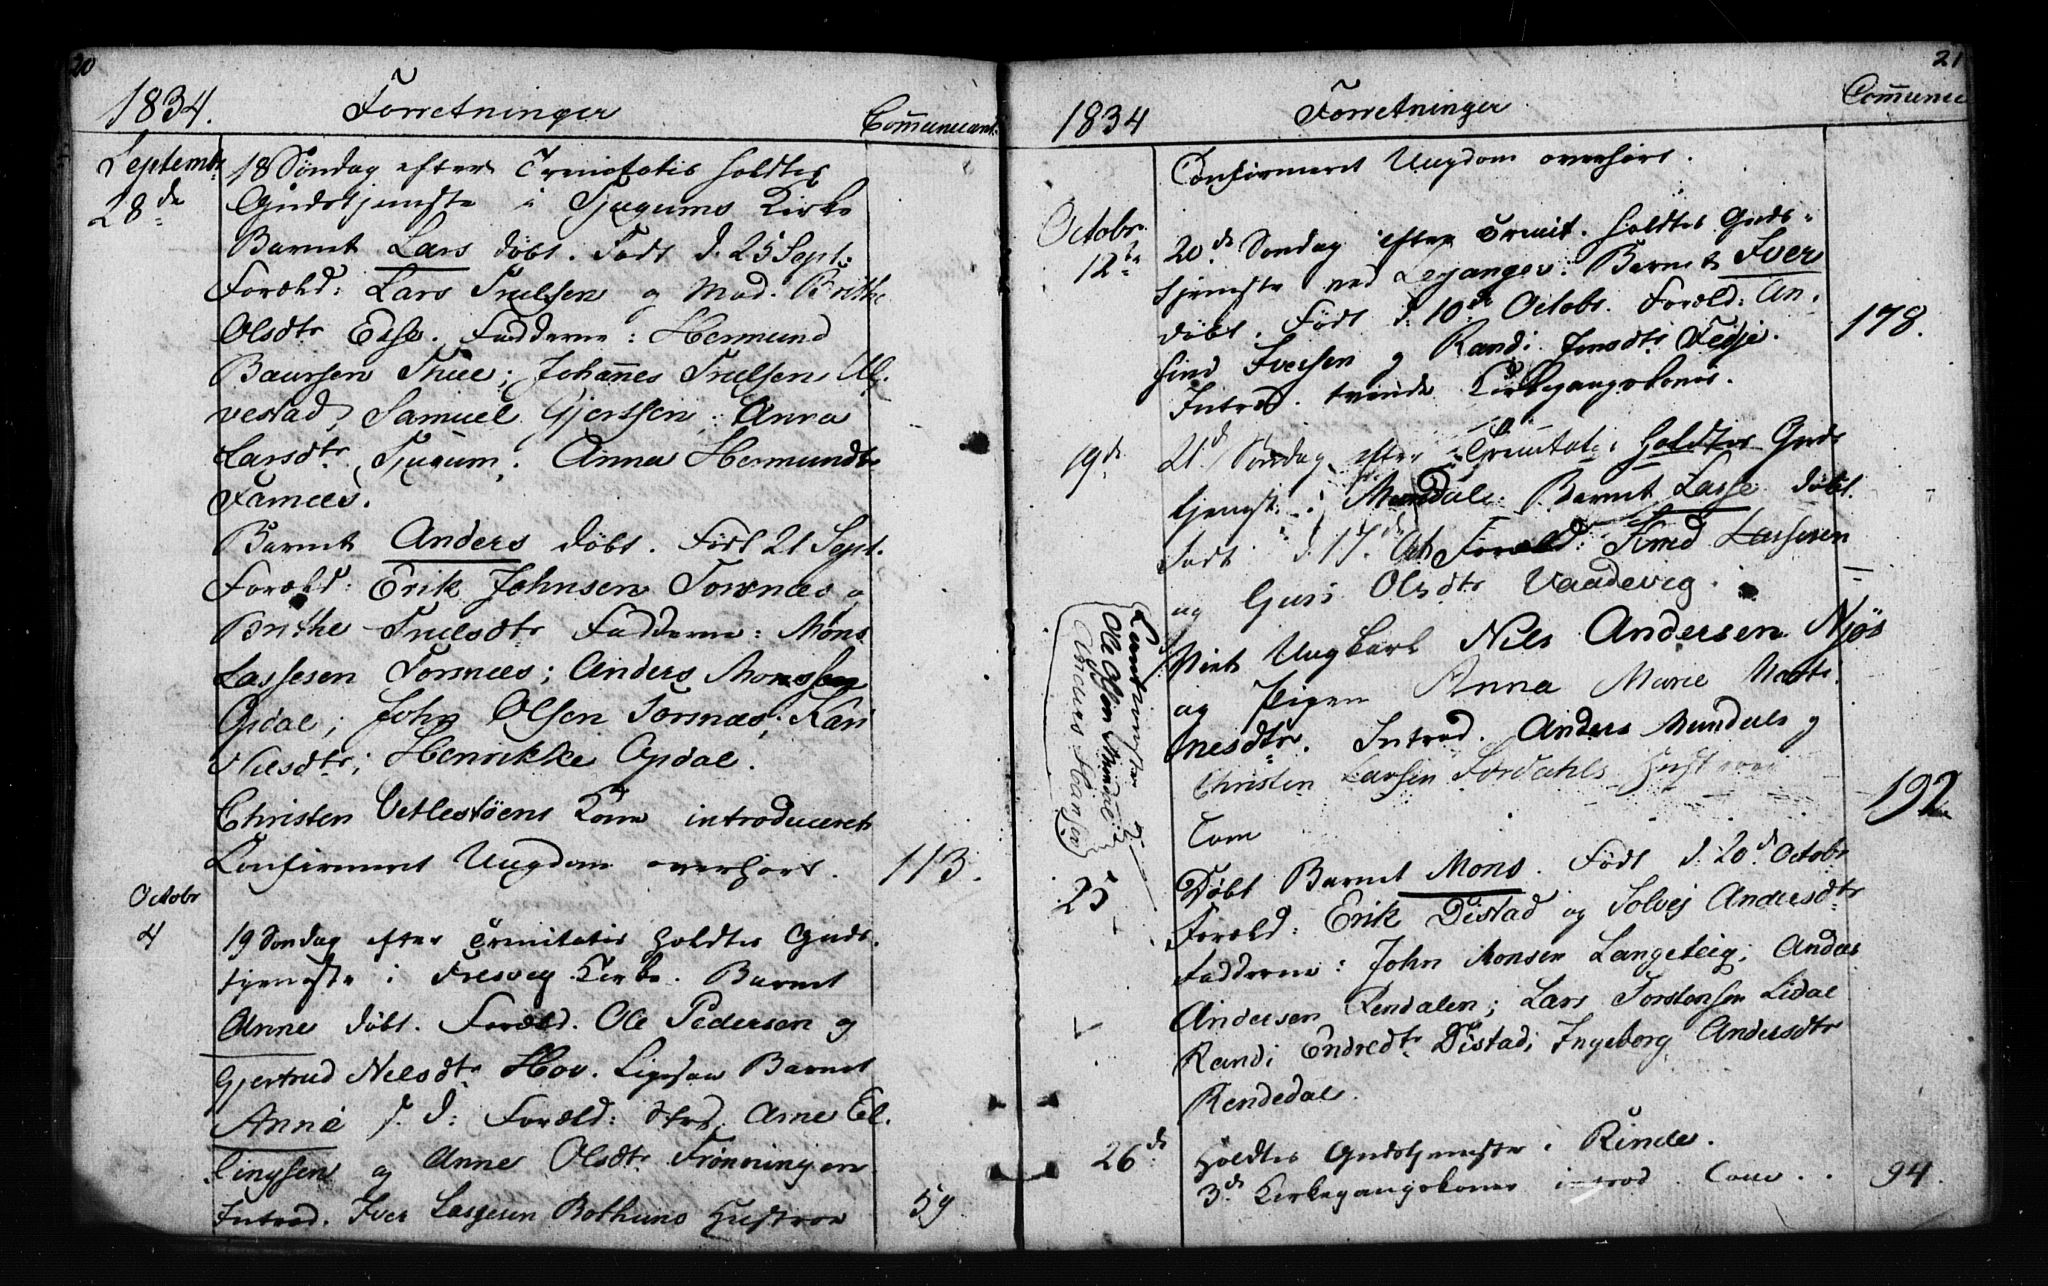 20
1834. Forretninger Com̄unicant.
Septembr 18 Søndag efter Trinitatis holdtes
28de Gudstjeneste i Tjugums Kirke
Barnet Lars døbt. Født d. 25 Sept.
Foræld: Lars Truelsen og Mad. Brithe
Olsdtr Ese. Fadderne: Hermund
Baursen Thue; Johan̄es Trulsen Al-
vestad, Samuel Gjertsen; Anna
Larsdtr Tjugum. Anna Hermundsdtr
Farnæs.
Barnet Anders døbt. Født 21 Sept.
Foræld: Erik Johnsen Tornæs og
Brithe Truelsdtr Fadderne: Mons
Lassesen Tornæs; Anders Monssen
Opdal; John Olsen Tornæs; Kari
Nilsdtr; Henrikke Opdal.
Christen Vetlestøens Kone introduceret
Confirmeret Ungdom overhørt. 113.
Octobr
4 19 Søndag efter Trinitatis holdtes Guds-
tjeneste i Fresvig Kirke. Barnet
Anne døbt. Foræld. Ole Pedersen og
Gjertrud Nilsdtr Hov. Ligesaa Barnet
Anne f. d: Foræld: Arne El-
lingsen og Anne Olsdtr Frønningen
Introd. Iver Lassesen Bothuns Hustroe 59
21
1834 Forretninger Com̄unic
Confirmeret Ungdom overhørt.
Octobr
12te 20de Søndag efter Trinit. holdtes Guds-
tjeneste ved Leganger. Barnet Iver
døbt. Født d. 10de Octobr. Foræld: An-
find Iversen og Randi Jensdtr Feisje. 178.
Introd. tvende Kirkegangskoner.
19de 21de Søndag efter Trinitatis holdtes Guds
tjenest. i Mundal: Barnet Lasse døbt.
Født d. 17de Oct Foræld: Knud Lassesen
og Guri Olsdtr Vaadevig.
Viet Ungkarl Nils Andersen Njøs
og Pigen Anna Marie Mort-
nesdtr. Introd. Anders Mundals og
Christen Larsen Jordahls Hustroer
Com 192
Cautionister
Ole Olsen Mundal og
Anders Hansen
25 Døbt Barnet Mons. Født d. 20de Octobr
Foræld: Erik Distad og Solvej Andersdtr
Fadderne: John Monsen Langeteig; Anders
Andersen Rendalen; Lars Torstensen Lidal
Randi Endredtr Distad; Ingeborg Andersdtr
Rendedal.
26de Holdtes Gudstjeneste i Rinde.
3de Kirkegangskoner introd. Com. 94.